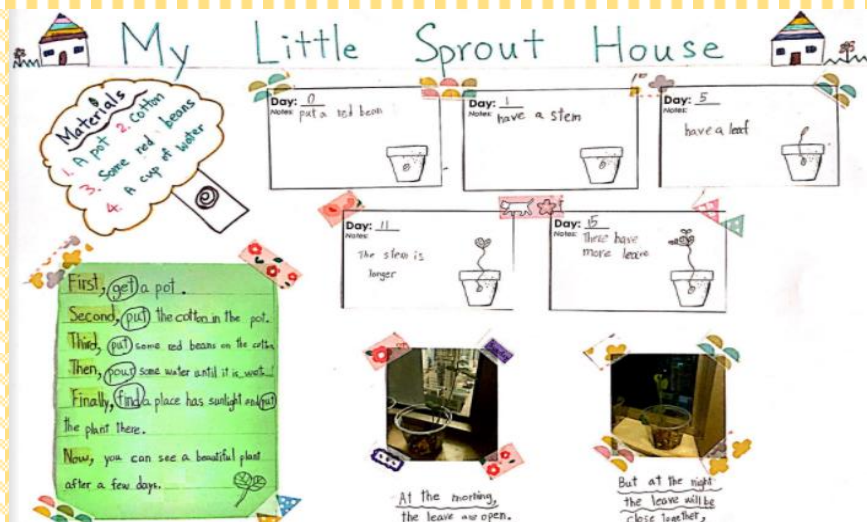 My Little Sprout House
Materials
1. A pot 2. Cotton
3. Some red beans
4. A cup of water
Day: 0
Notes: put a red bean
Day: 1
Notes: have a stem
Day: 5
Notes:
have a leaf
Day: 11
Notes:
The stem is
longer
Day: 15
Notes:
There have
more leave
First, get a pot.
Second, put the cotton in the pot.
Third, put some red beans on the cotton
Then, pour some water until it is wet.
Finally, find a place has sunlight and put
the plant there.
Now, you can see a beautiful plant
after a few days.
At the morning,
the leave are open.
But at the night
the leave will be
close together.